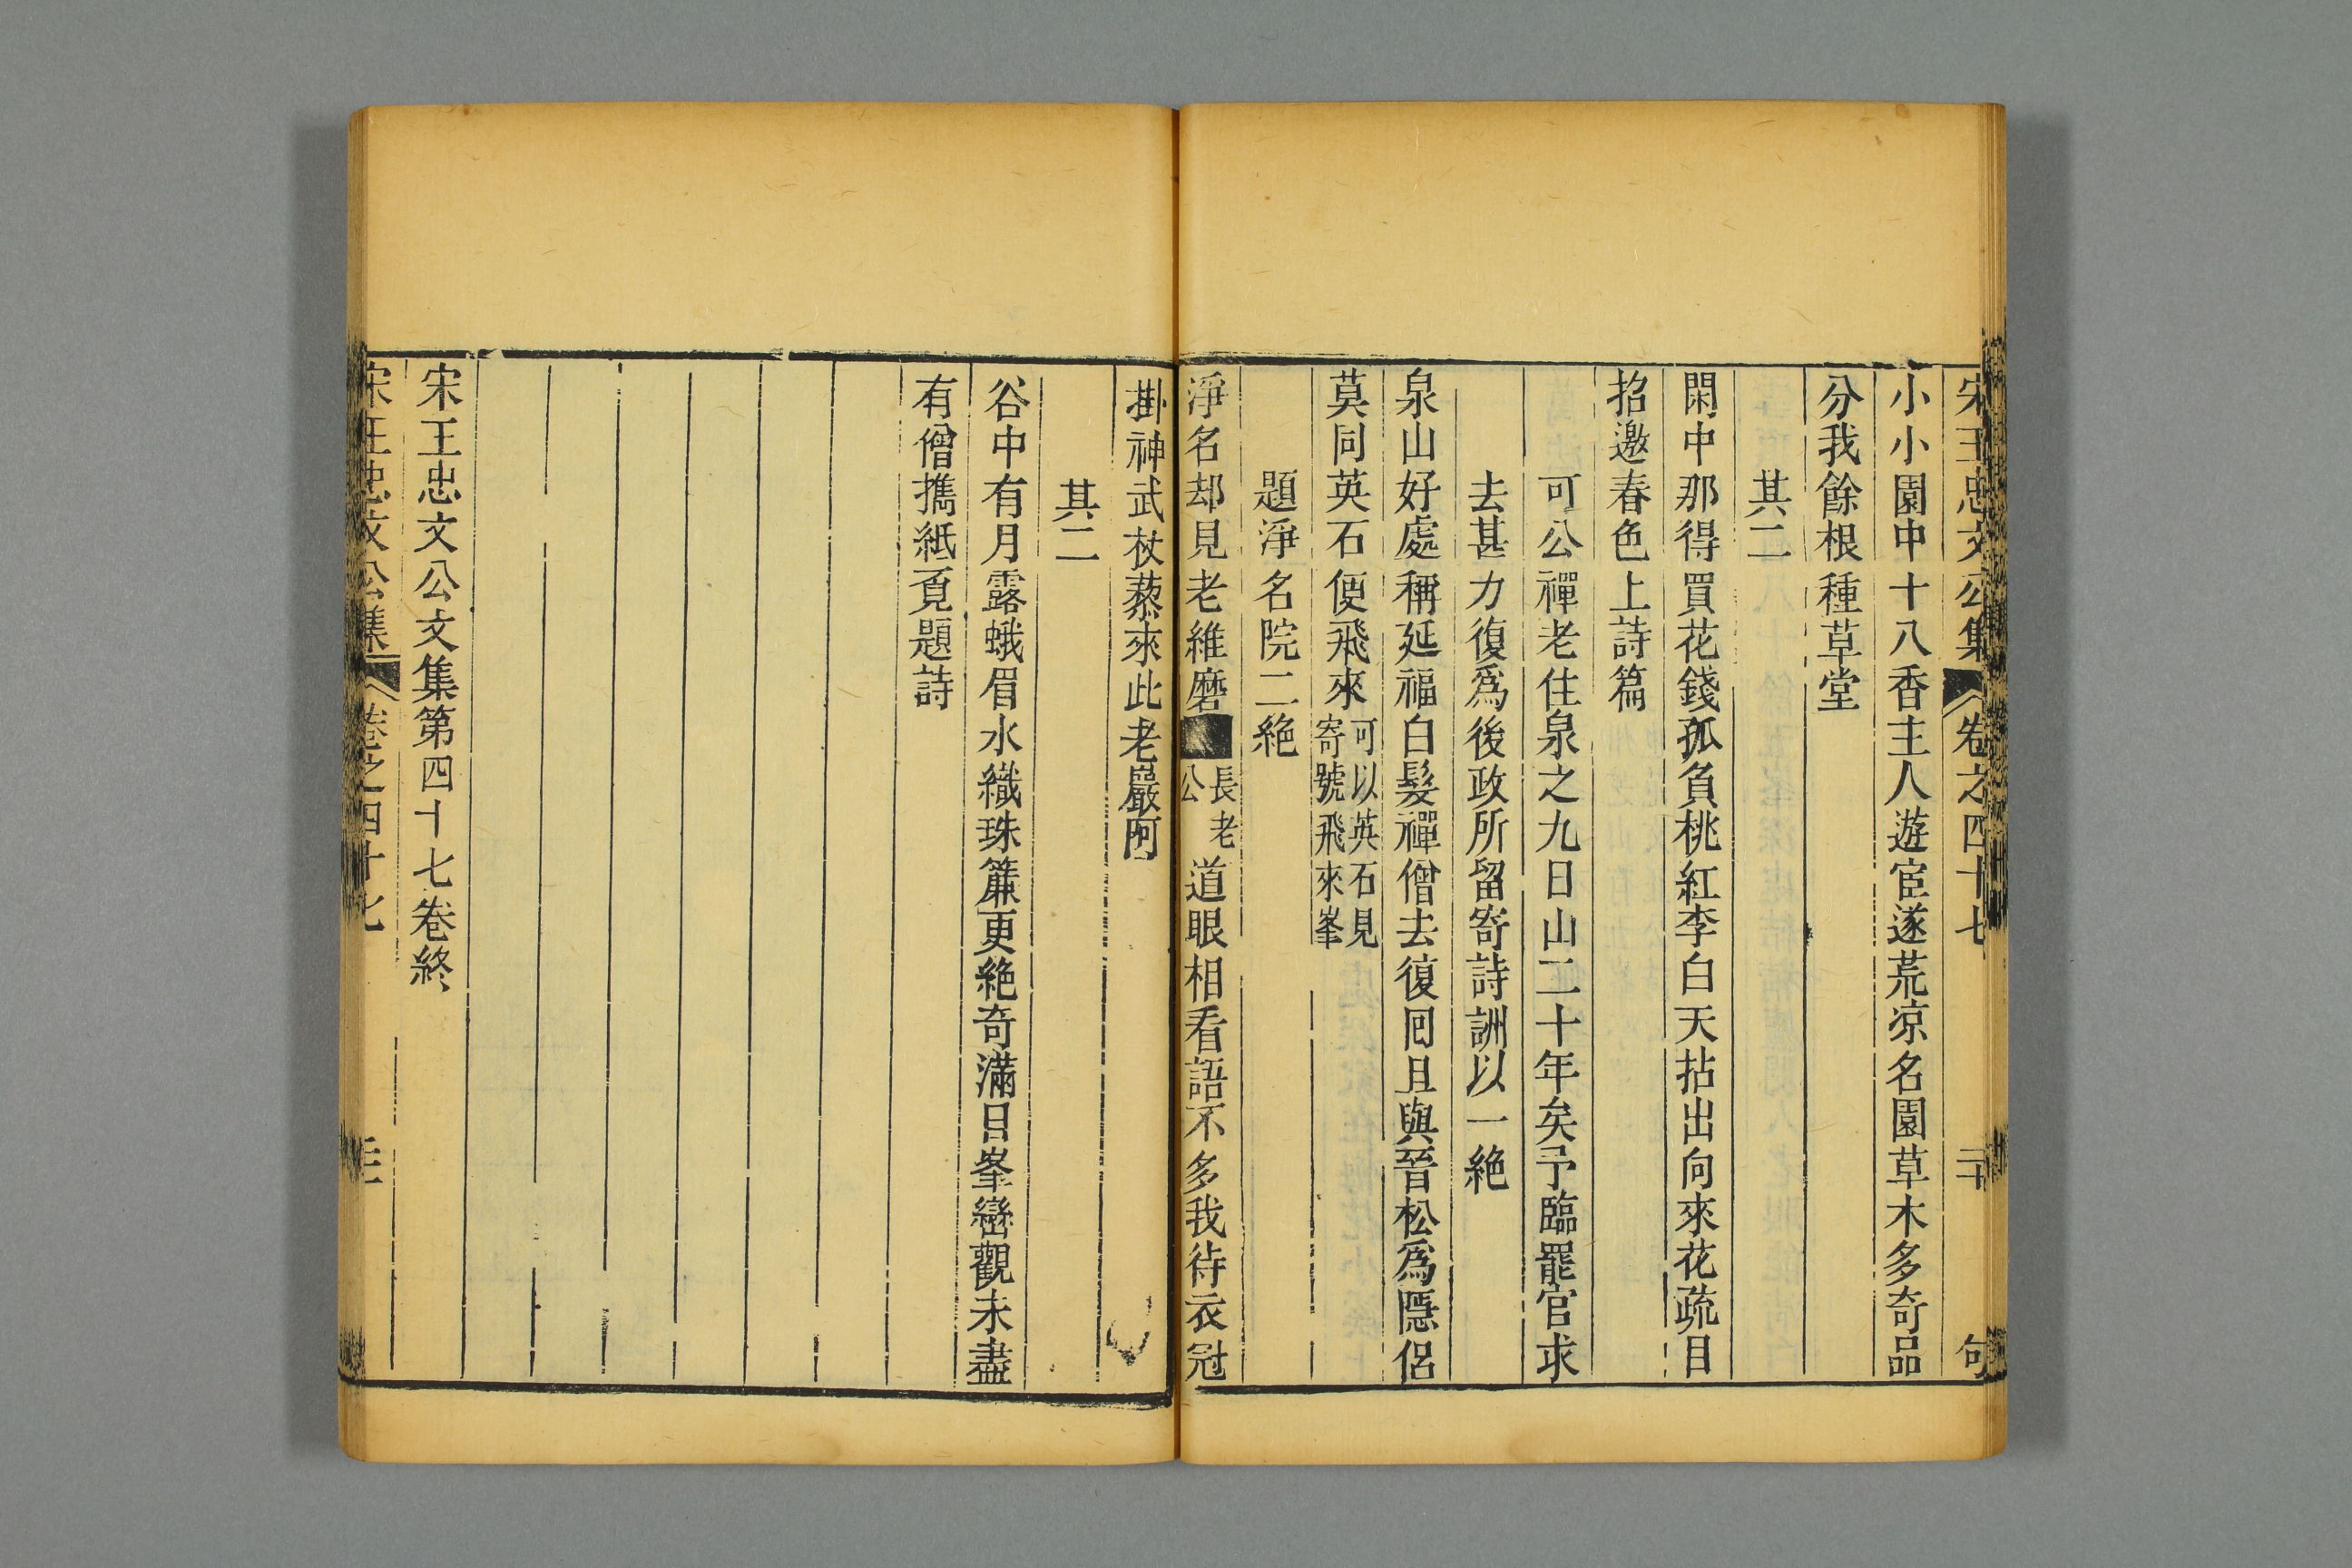 宋王忠文公集 卷之四十七 二十 句
小小園中十八香主人遊宦遂荒凉名園草木多奇品
分我餘根種草堂
其二
閑中那得買花錢孤負桃紅李白天拈出向來花疏目
招邀春色上詩篇
可公禪老住泉之九日山二十年矣予臨罷官求
去甚力復爲後政所留寄詩詶以一絶
泉山好處稱延福白髮禪僧去復囘且與晉松爲隱侶
莫同英石便飛來可以英石見寄號飛來峯
題淨名院二絶
淨名却見老維磨長老公道眼相看語不多我待衣冠
掛神武杖藜來此老巖阿
其二
谷中有月露蛾眉水織珠簾更絶奇滿目峯巒觀未盡
有僧擕紙覔題詩
宋王忠文公文集第四十七卷終
宋王忠文公集 卷之四十七